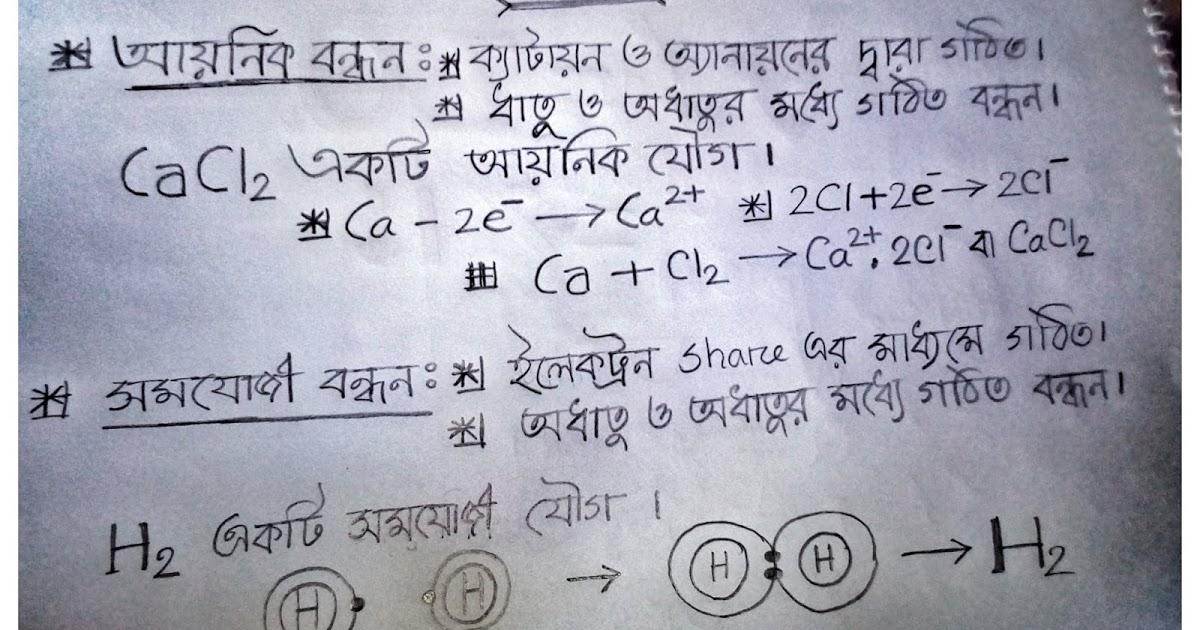 * আয়নিক বন্ধন : * ক্যাটায়ন ও অ্যানায়নের দ্বারা গঠিত।
* ধাতু ও অধাতুর মধ্যে গঠিত বন্ধন।
CaCl₂ একটি আয়নিক যৌগ।
* Ca – 2e⁻ → Ca²⁺ * 2Cl + 2e⁻ → 2Cl⁻
# Ca + Cl₂ → Ca²⁺. 2Cl⁻ বা CaCl₂
* সমযোজী বন্ধন : * ইলেকট্রন share এর মাধ্যমে গঠিত।
* অধাতু ও অধাতুর মধ্যে গঠিত বন্ধন।
H₂ একটি সমযোজী যৌগ।
H H → H H → H₂